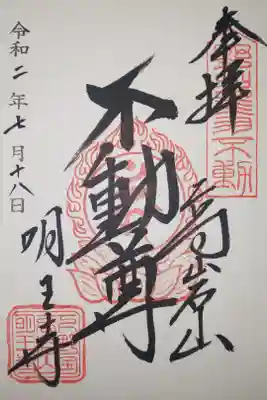 奉拝
高岩山
不動尊
明王寺
令和二年七月十八日